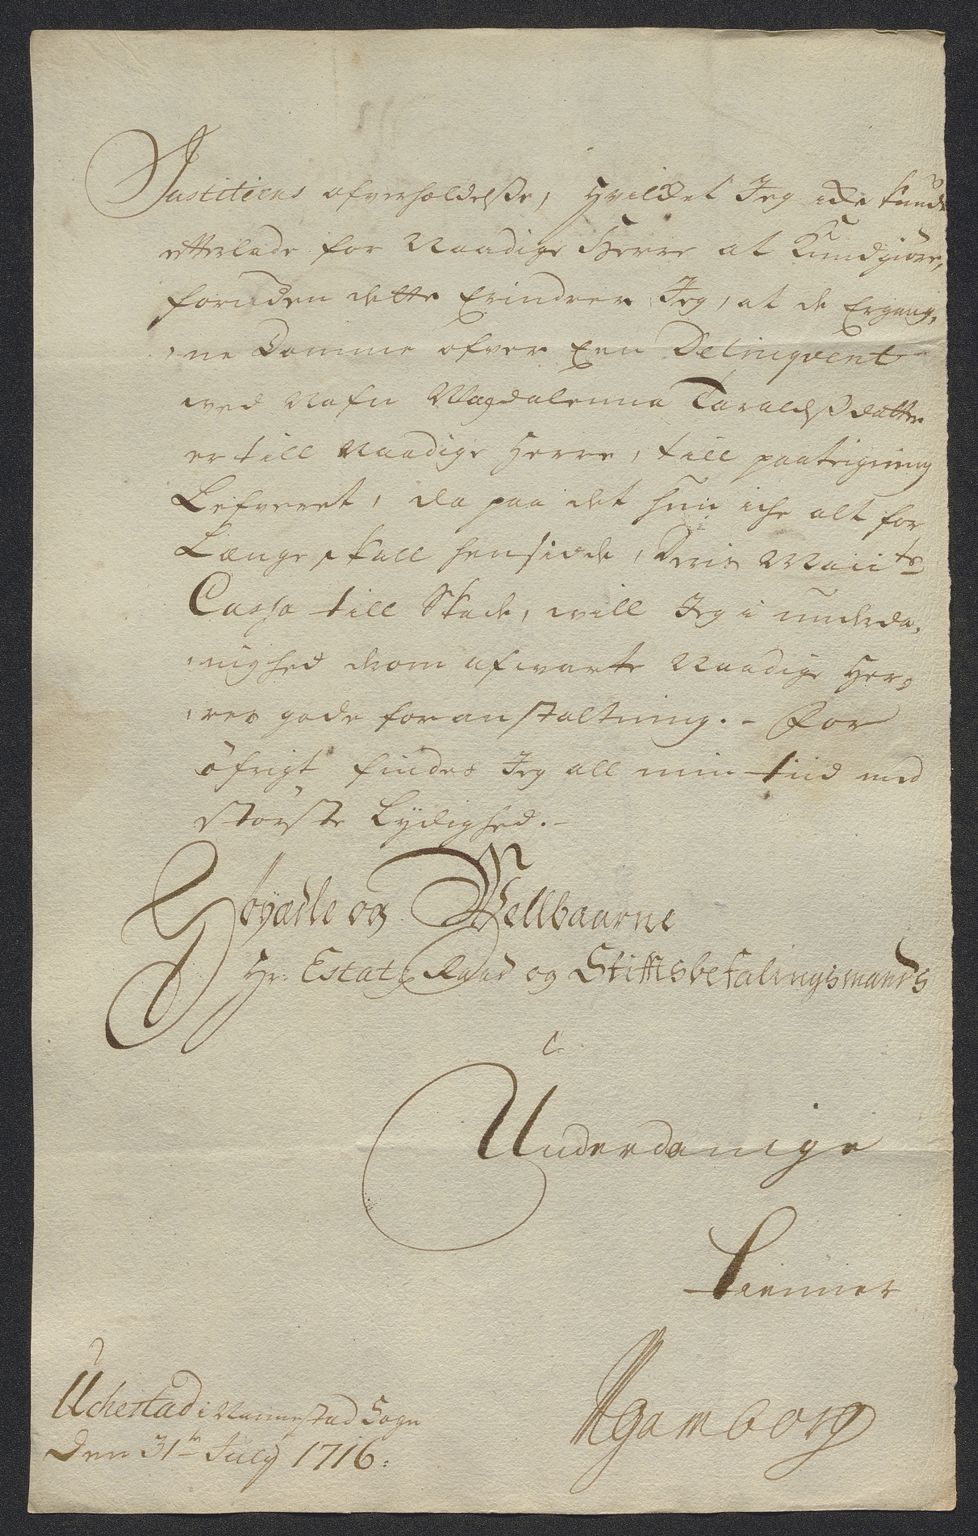 Justitiens ofverholdelse, hvilcket Jeg icke kunde
efterlade for Naadige Herre at Kundgiöre,
foruden dette Erindrer Jeg, at de Ergang,
ne Domme ofver Een Delinqvent
ved Nafn Magdalenna Taraldsdatter
er till Naadige Herre, till paateigning
Lefveret, da paa det hun iche alt for
Længe skall hensidde, Deris Maiits
Cassa till Skade, vill Jeg i underda,
nighed derom afvarte Naadige Her,
res gode foranstaltning. - For
öfrigt findes Jeg all min tiid med
störste Lydighed. -
Höyædle og Wellbaarne
Hr: Estatz Raad og Stiftsbefalingsmands
Underdanige
tienner
Gamborg
Uchestad i Nannestad Sogn
Den 31te July 1716: